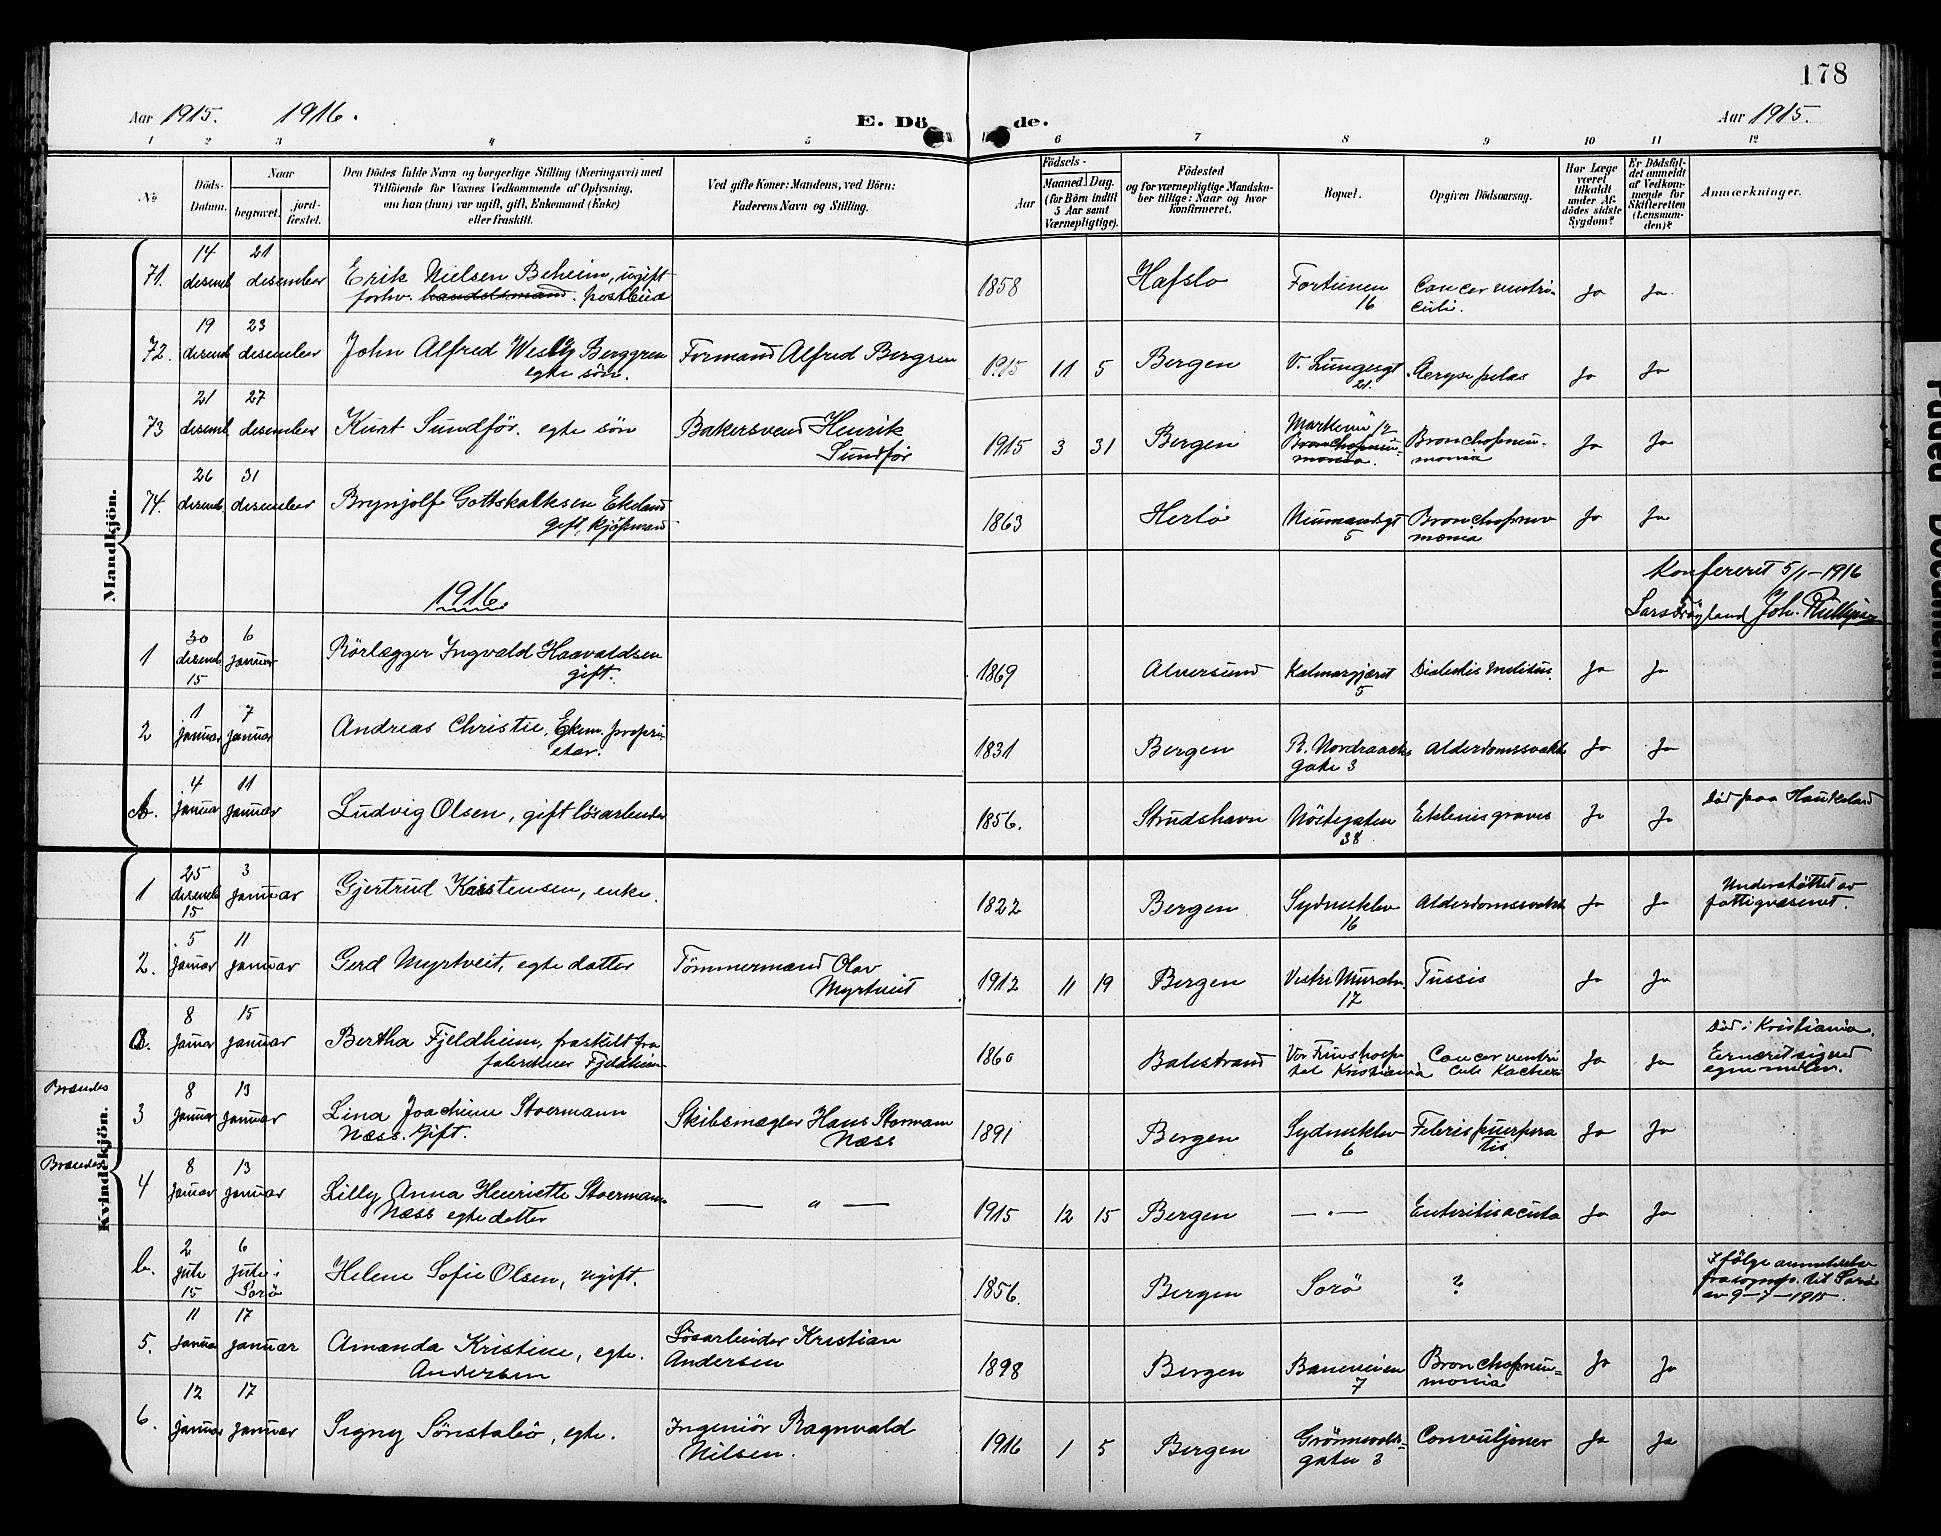 178
Aar 1915. 1916.
E. Dö de.
Aar 1915.
1 2 3 4 5 6 7 8 9 10 11 12
No
Döds-
Datum.
Naar
begravet.
jord-
fæstet.
Den Dödes fulde Navn og borgerlige Stilling (Næringsvei) med
Tilföiende for Voxnes Vedkommende af Oplysning,
om han (hun) var ugift, gift, Enkemand (Enke)
eller fraskilt.
Ved gifte Koner: Mandens, ved Börn:
Faderens Navn og Stilling.
Födsels-
Aar
Maaned
Dag.
(for Börn indtil
5 Aar samt
Værnepligtige).
Födested
og for værnepligtige Mandska-
ber tillige: Naar og hvor
konfirmeret.
Bopæl.
Opgiven Dödsaarsag.
Har Læge
været
tilkaldt
under Af-
dödes sidste
Sygdom?
Er Dödsfal-
det anmeldt
af Vedkom-
mende for
Skifteretten
(Lensman-
den)?
Anmærkninger.
Mandkjön.
71. 14 desemb 21 desember Erik Nielsen Beheim, ugift
forhv. handelsmand. postbud
1858 Hafslo Fortunen 16 Cancer ventri-
culi. Ja Ja.
72. 19 desemb 23 desember John Alfred Wesly Berggren
egte sön.
Formand Alfred Bergren
1915 11 5 Bergen V. Lungegt 21. Ja Ja
73 21 desemb 27 desember Kurt Sundför. egte sön
Bakersvend Henrik
Sundför
1915 3 31 Bergen Marken 12
Bronchopneu-
monia.
Bronchopneu-
monia Ja Ja
74. 26 desemb. 31 desember Brynjolf Gottskalksen Ekeland
gift, kjöpmand
1863 Herlö Neumandsgt 5 Bronchopneu
monia Ja Ja
Konfereret 5/1-1916
Lars Joh.
1916.
1 30 desemb 15 6 januar Rörlægger Ingvald Haavaldsen
gift.
1869 Alversund Kalmargjæret 5 Diabetis melitus. Ja Ja
2 1 januar 7 januar Andreas Christie, Ekem. propri-
etær.
1831 Bergen R. Nordraachs
gate 3 Alderdomssvakh Ja Ja
A. 4 januar 11 januar Ludvig Olsen, gift lösarbeider
1856. Strudshavn Nöstegaten
38. gravis Ja Ja Död paa Haukeland
Kvindekjön.
1 25 desemb 15 3 januar Gjertrud Kristensen, enke.
1822 Bergen Sydnesklev
16 Alderdomssvakh Ja Ja Understöttet av
fattigvæsenet.
2. 5 januar 11 januar Gerd Myrtveit, egte datter
Tömmermand Olav
Myrtveit
1912 11 19 Bergen Vestre Muralm.
17 Tussis Ja Ja
B. 8 januar 15 januar Bertha Fjeldheim, fraskilt fra
Fjeldheim
1860 Balestrand Vor Frues hospi
tal Kristiania Cancer ventri
culi Kachexi Ja Ja Död i Kristiania.
Ernæret sig ved
egne midler.
Brændes
3 8 januar 13 januar Lina Joachime Stoermann
Næss. Gift.
Skibsmægler Hans Stormann
Næss
1891 Bergen Sydnesklev
6 Febris puerpera
lis. Ja Ja
Brændes
4 8 januar 13 januar Lilly Anna Henriette Stoermann
Næss egte datter
— " —
1915 12 15 Bergen — " — Enteritis acuta Ja Ja
C. 2 jule 15 6 jule i Sorö Helene Sofie Olsen, ugift.
1856. Bergen Sorö ? Ifölge anmeldelse
fra sognep. til Sorö
av 9-7-1915.
5. 11 januar 17 januar Amanda Kristine, egte.
Andersen
Lösarbeider Kristian
Andersen
1898 Bergen Baneveien
7 Bronchopneu-
monia Ja Ja
6. 12 januar 17 januar Signy Sönstabö, egte.
Ingeniör Ragnvald
Nilsen.
1916 1 5 Bergen Grönnevolds-
gaten 3 Convulsjoner Ja Ja
Faded Document